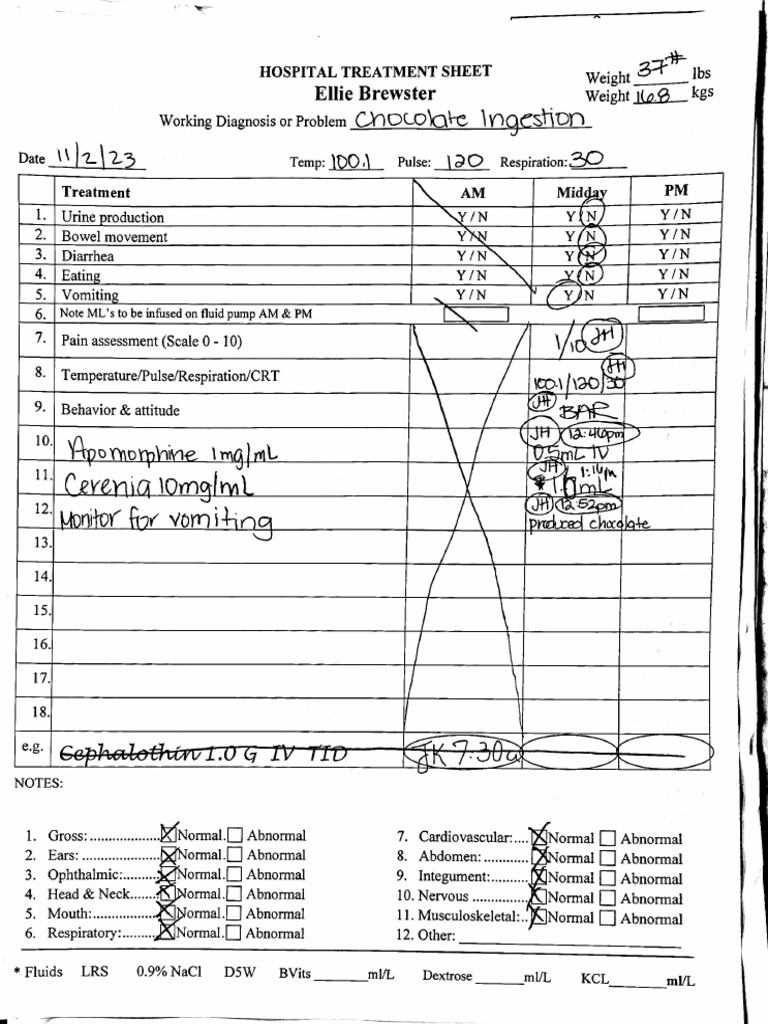 HOSPITAL TREATMENT SHEET
Weight 37# lbs
Ellie Brewster
Weight 16.8 kgs
Working Diagnosis or Problem Chocolate Ingestion
Date 11/2/23 Temp: 100.1 Pulse: 120 Respiration: 30
Treatment AM Midday PM
1. Urine production Y / N Y / N Y / N
2. Bowel movement Y / N Y / N Y / N
3. Diarrhea Y / N Y / N Y / N
4. Eating Y / N Y / N Y / N
5. Vomiting Y / N Y / N Y / N
6. Note ML's to be infused on fluid pump AM & PM
7. Pain assessment (Scale 0 - 10) 1/10 JH
8. Temperature/Pulse/Respiration/CRT 100.1/120/30 JH
9. Behavior & attitude JH BAR
10. Apomorphine 1mg/mL JH 12:46pm 0.5mL IV
11. Cerenia 10mg/mL JH 1:16pm *1.0mL
12. Monitor for vomiting JH 12:52pm produced chocolate
13.
14.
15.
16.
17.
18.
e.g. Cephalothin 1.0 G IV TID JK 7:30a
NOTES:
1. Gross: .................. Normal. Abnormal
7. Cardiovascular:.... Normal Abnormal
2. Ears: .................. Normal. Abnormal
8. Abdomen: ............ Normal Abnormal
3. Ophthalmic:....... Normal. Abnormal
9. Integument: ......... Normal Abnormal
4. Head & Neck...... Normal. Abnormal
10. Nervous ............. Normal Abnormal
5. Mouth:................ Normal. Abnormal
11. Musculoskeletal:.. Normal Abnormal
6. Respiratory:......... Normal. Abnormal
12. Other:
* Fluids LRS 0.9% NaCl D5W BVits ml/L Dextrose ml/L KCL ml/L